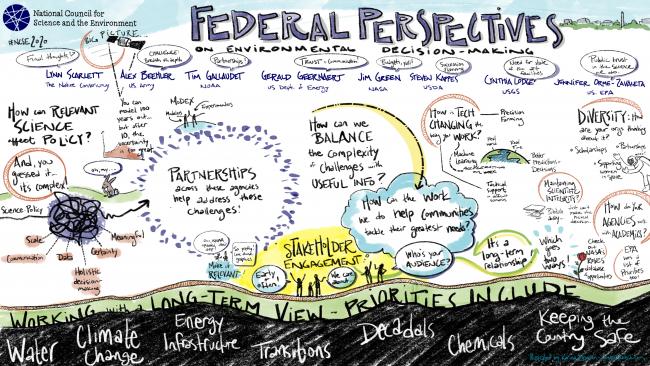 National Council for
Science and the Environment
#NCSE2020
FEDERAL PERSPECTIVES
ON ENVIRONMENTAL DECISION-MAKING
PICTURE...
Final thoughts?
CHALLENGE:
Partnerships!
TRUST + Communication
Budgets, yes!
Public trust
in the science
LYNN SCARLETT
The Nature Conservancy
ALEX BEEHLER
US Army
TIM GALLAUDET
NOAA
GERALD GEERNAERT
US Dept. of Energy
JIM GREEN
NASA
STEVEN KAPPES
USDA
CYNTHIA LODGE
USGS
JENNIFER ORME-ZAVALETA
US EPA
HOW can
RELEVANT
SCIENCE
affect POLICY?
And, you
guessed it...
It's complex!
You can
model 100
years out...
but after
10, the
uncertainty
is great
oh, my...
Science-Policy
Scale
Communication
Data
Certainty
Meaningful
Holistic
decision
making
MODEX
Modelers
Experimenters
PARTNERSHIPS
across these agencies
help address those
challenges!
Make it
RELEVANT!
How can we
BALANCE
the complexity
of challenges with
USEFUL INFO?
STAKEHOLDER
ENGAGEMENT
Early
often
We care
about
How can the work
we do help communities
tackle their greatest needs?
Who's your
AUDIENCE?
It's a
long-term
relationship
How is TECH
CHANGING the
way you WORK?
Machine
learning
Precision
Farming
Real
time
Better
Predictions
Decisions
Tactical
support
MAINTAINING
SCIENTIFIC
INTEGRITY?
Which
goes
two
ways!
DIVERSITY: How
are your orgs thinking
about it?
- Scholarships
- Partnerships
- Supporting
women
in
space
HOW do FED
AGENCIES
work with
ACADEMICS?
Check
out
NASA's
USDA's
EPA
has a
list of
Priorities
too!
WORKING with a LONG-TERM VIEW - PRIORITIES INCLUDE
Water
Climate
Change
Energy
Infrastructure
Transitions
Decadals
Chemicals
Keeping the
Country Safe